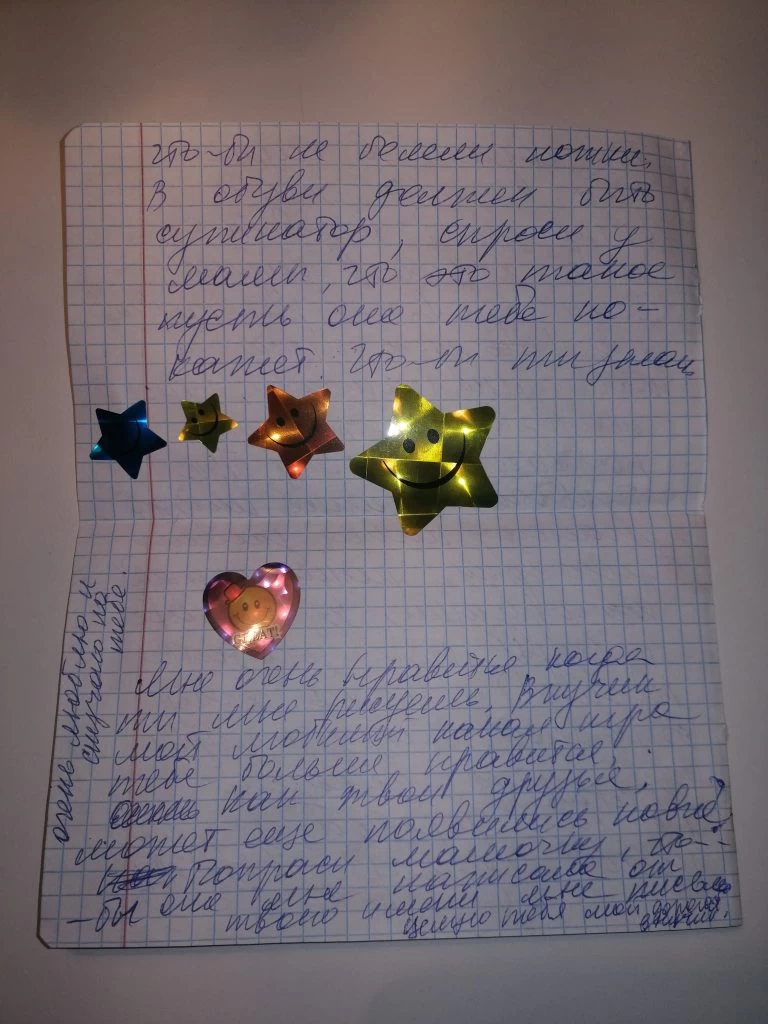 что-бы не болели ножки.
В обуви должен быть
супинатор, спроси у
мамы, что это такое
пусть она тебе по-
кажет. Что-бы ты делал
GREAT!
Мне очень нравится когда
ты мне рисуешь. Внучек
мой любимый какая игра
тебе больше нравится,
как твои друзья,
может еще появились новые?
Попроси мамочку, что-
-бы она мне написала от
твоего имени мне письмо
целую тебя мой дорогой
внучек.
очень люблю и
скучаю по
тебе.